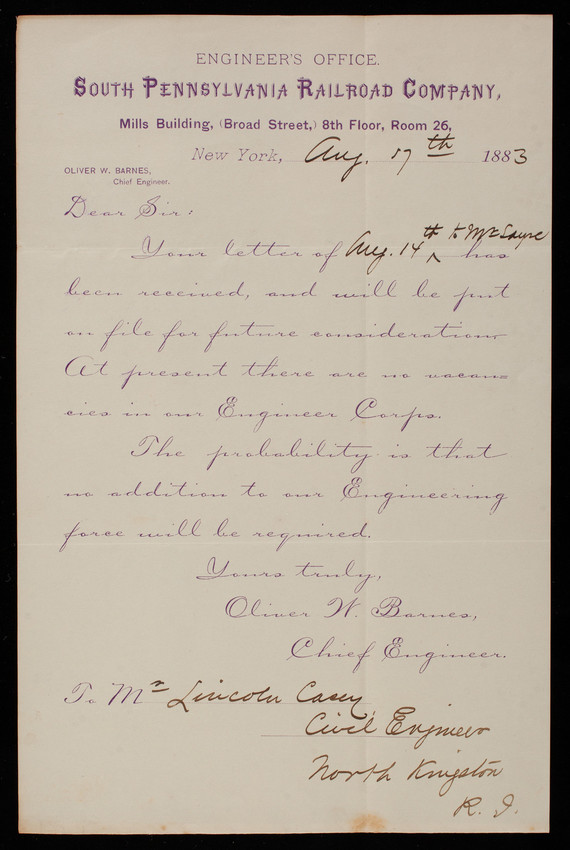 ENGINEER'S OFFICE.
SOUTH PENNSYLVANIA RAILROAD COMPANY,
Mills Building, (Broad Street,) 8th Floor, Room 26,
New York, Aug. 17th 1883
OLIVER W. BARNES,
Chief Engineer.
Dear Sir:
Your letter of Aug. 14th to Mr Sayre has
been received, and will be put
on file for future consideration.
At present there are no vacan=
cies in our Engineer Corps.
The probability is that
no addition to our Engineering
force will be required.
Yours truly,
Oliver W. Barnes,
Chief Engineer.
To Mr Lincoln Casey,
Civil Engineer
North Kingston
R. I.